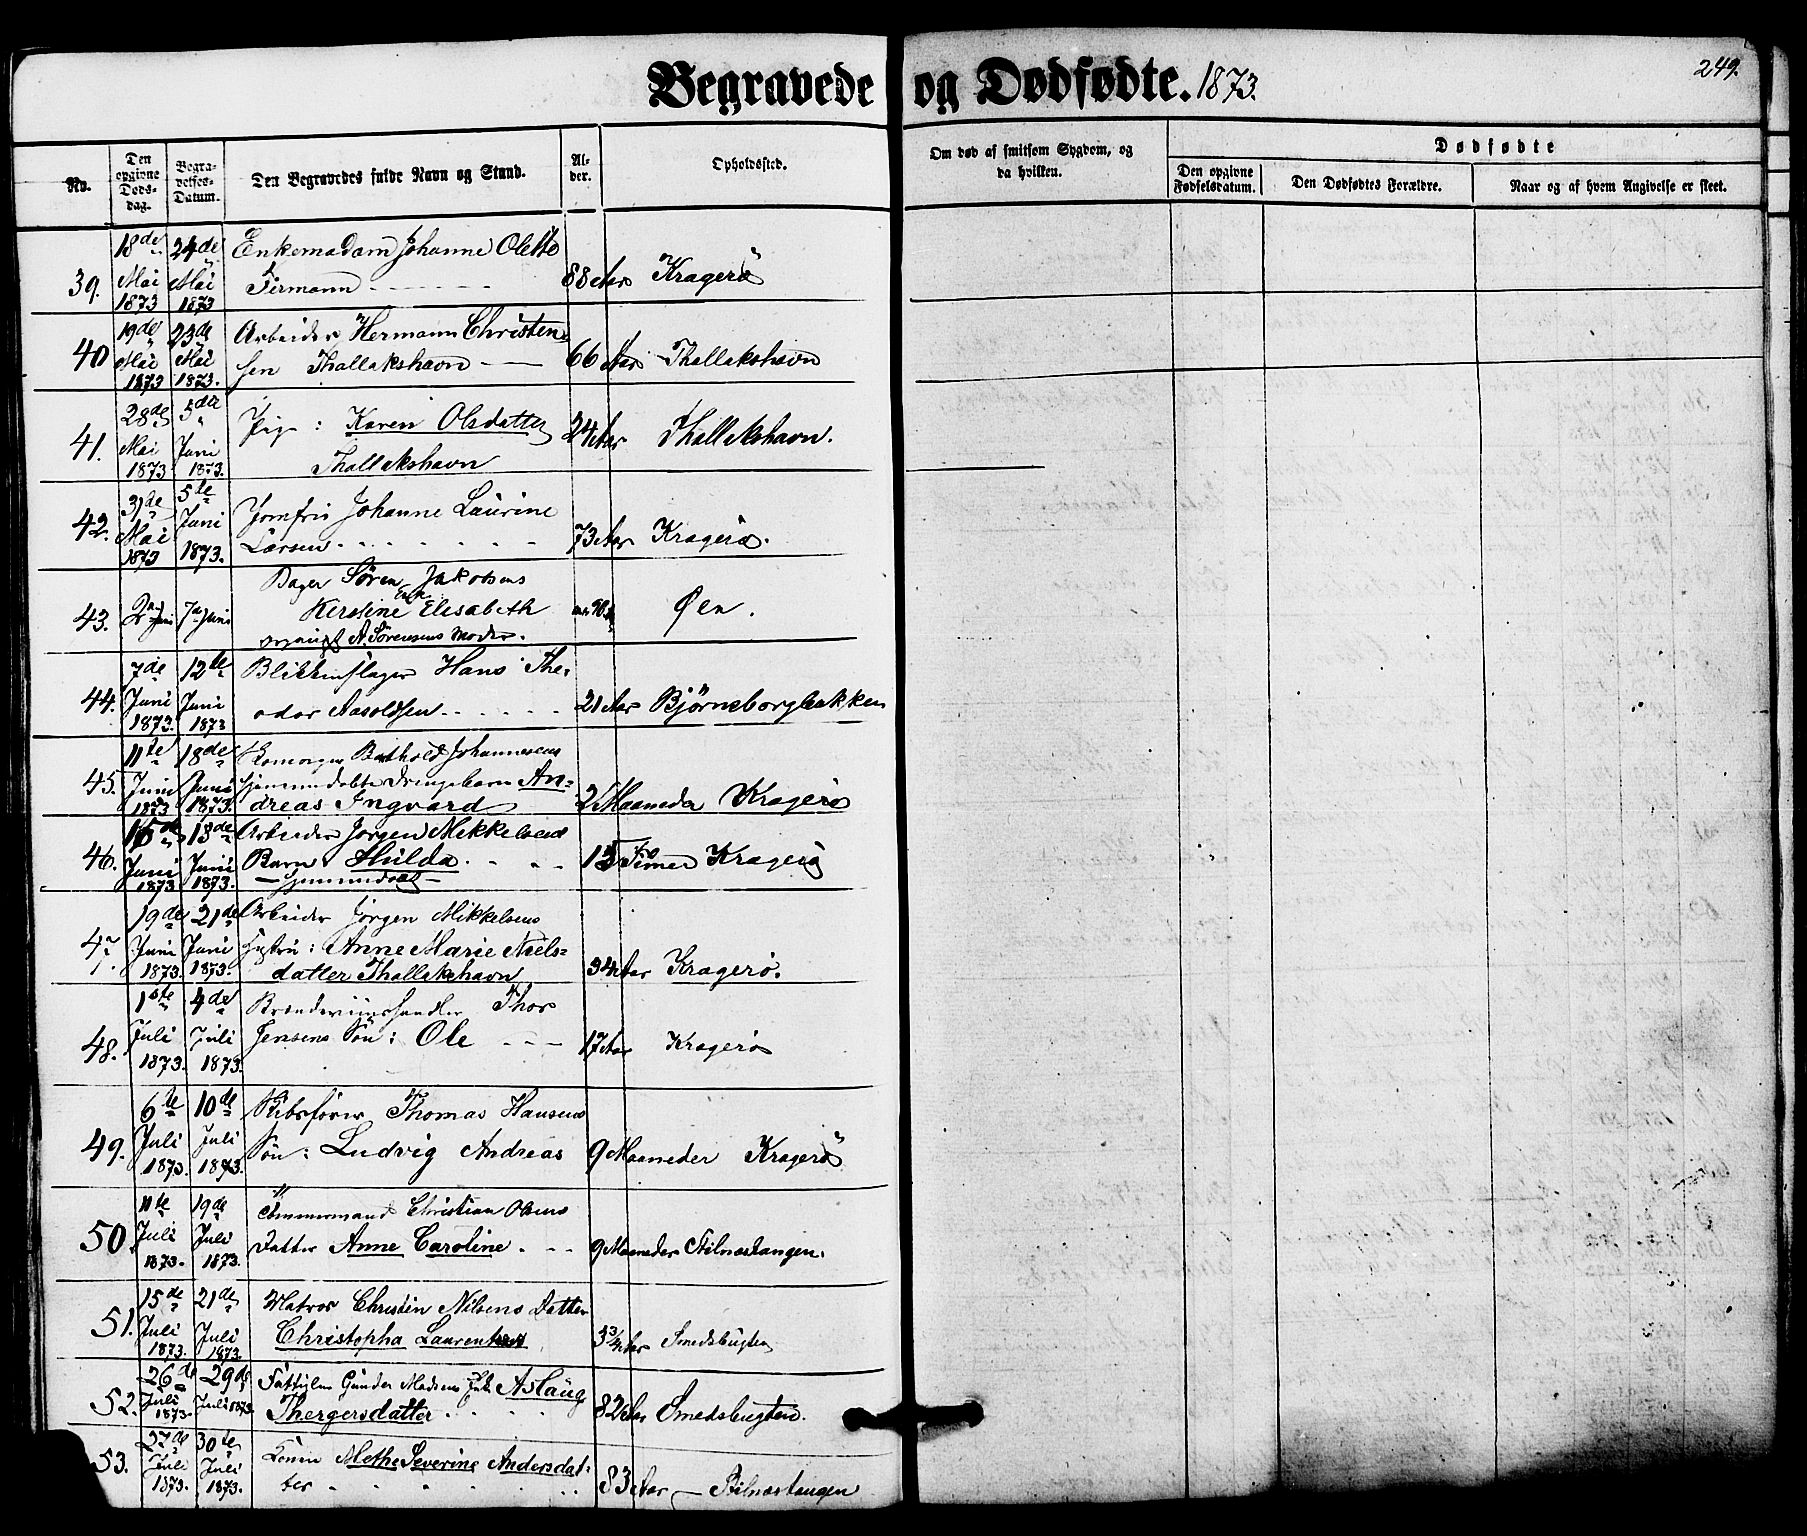 Begravede og Dødfødte. 1873.
249.
No.
Den opgivne Døds-dag.
Begra-velses-Datum.
Den Begravedes fulde Navn og Stand.
Al-der.
Opholdssted.
Om død af smitsom Sygdom, og da hvilken.
Dødfødte
Den opgivne Fødselsdatum.
Den Dødfødtes Forældre.
Naar og af hvem Angivelse er skeet.
18de 24de Enkemadam Johanne Olette
39. Mai Mai Firmann 88 Aar Kragerö
1873 1873
19de 23de Arbeider Hermann Christen-
40 Mai Mai sen Thallakshavn 66 Aar Thallakshavn
1873 1873.
28de 5te Pige: Karen Olsdatter 24 Aar Thallakshavn.
41. Mai Juni Thallakshavn
1873 1873.
31de 5te Jomfru Johanne Laurine
42. Mai Juni Larsen 73 Aar Kragerö.
1873 1873.
Bager Søren Jakobsens
43. 2n Juni 7n Juni Enke Kerstine Elisabeth 90 Øen.
A. Sørensens Moder.
7de 12te Blikkenslager Hans The-
44. Juni Juni odor Aasoldsen 21 Aar Björneborgbakken
1873. 1873
11te 18de Bertholdt Johannesens
45. Juni Juni hjemmedøbte Drengebarn An-
1873 1873. dreas Ingvard 2 Maaneder Kragerö
16de 18de Arbeider Jörgen Mikkelsens
46. Juni Juni Barn Hilda 15 Timer Kragerö
1873. 1873. hjemmedøbt
19de 21de Arbeider Jörgen Mikkelsens
47. Juni Juni Hustru: Anne Marie Niels-
1873. 1873. datter Thallakshavn 34 Aar Kragerö.
1ste 4de Brændeviinshandler Thor
48. Juli Juli Jensens Sön: Ole 17 Aar Kragerö
1873. 1873.
6te 10de Skibsförer Thomas Hansens
49. Juli Juli Sön: Ludvig Andreas 9 Maaneder Kragerö
1873. 1873.
11te 19de Tömmermand Christian Olsens
50. Juli Juli Datter Anne Caroline 9 Maaneder Stilnæstangen.
1873. 1873.
15de 21de Matros Christen Nilsens Datter
51. Juli Juli Christopha 3 3/4 Aar Smedsbugten
1873. 1873.
26de 29de Fattiglem Gunder Madsens Enke Aslaug
52. Juli Juli 1873 Thergersdatter 82 Aar Smedsbugten.
1873.
27de 30te Lönin Methe Severine Andersdat-
53. Juli Juli ter 83 Aar Stilnæstangen
1873. 1873.